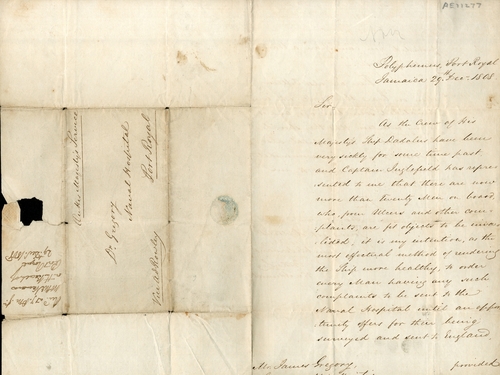 PE31277
Polyphemus, Port Royal
Jamaica 29th Dec. 1808
Sir,
As the Crew of His
Majesty's Ship Dædalus have been
very sickly for some time past
and Captain Inglefield has repre
sented to me that there are now
more than twenty Men on board
who, from Ulcers and other com
plaints, are fit objects to be inva
lided, it is my intention, as the
most effectual method of rendering
the Ship more healthy, to order
every Man having any such
complaints to be sent to the
Naval Hospital until an oppor
tunity offers for their being
surveyed and sent to England,
Mr. James Gregory, provided
On His Majesty's Service
Dr. Gregory
Naval Hospital
Port Royal
Vice Adl. Rowley
Port Royal
29 Decr. 1808